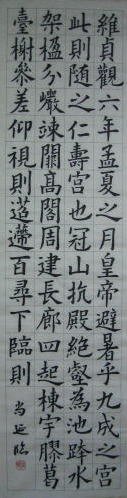 維貞觀六年孟夏之月皇帝避暑乎九成之宮
此則隨之仁壽宮也冠山抗殿絕壑為池跨水
架楹分巖竦闕高閣周建長廊四起棟宇膠葛
臺榭參差仰視則迢遰百尋下臨則
尚延臨